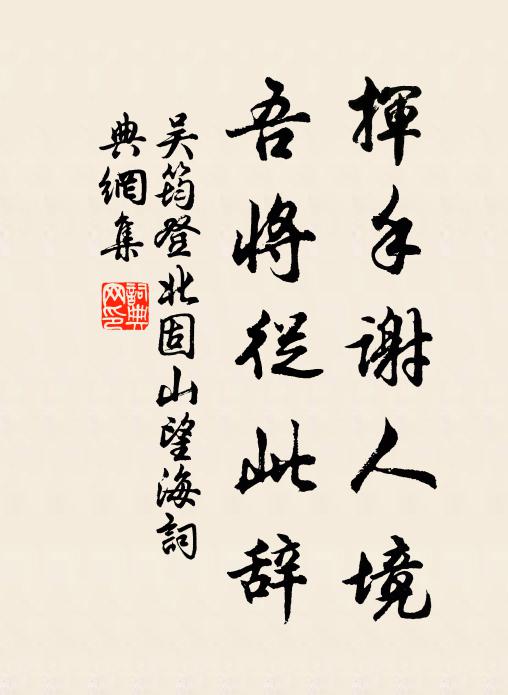 揮手謝人境
吾將從此辞
吴筠登北固山望海詞
典網集
詞典
网印